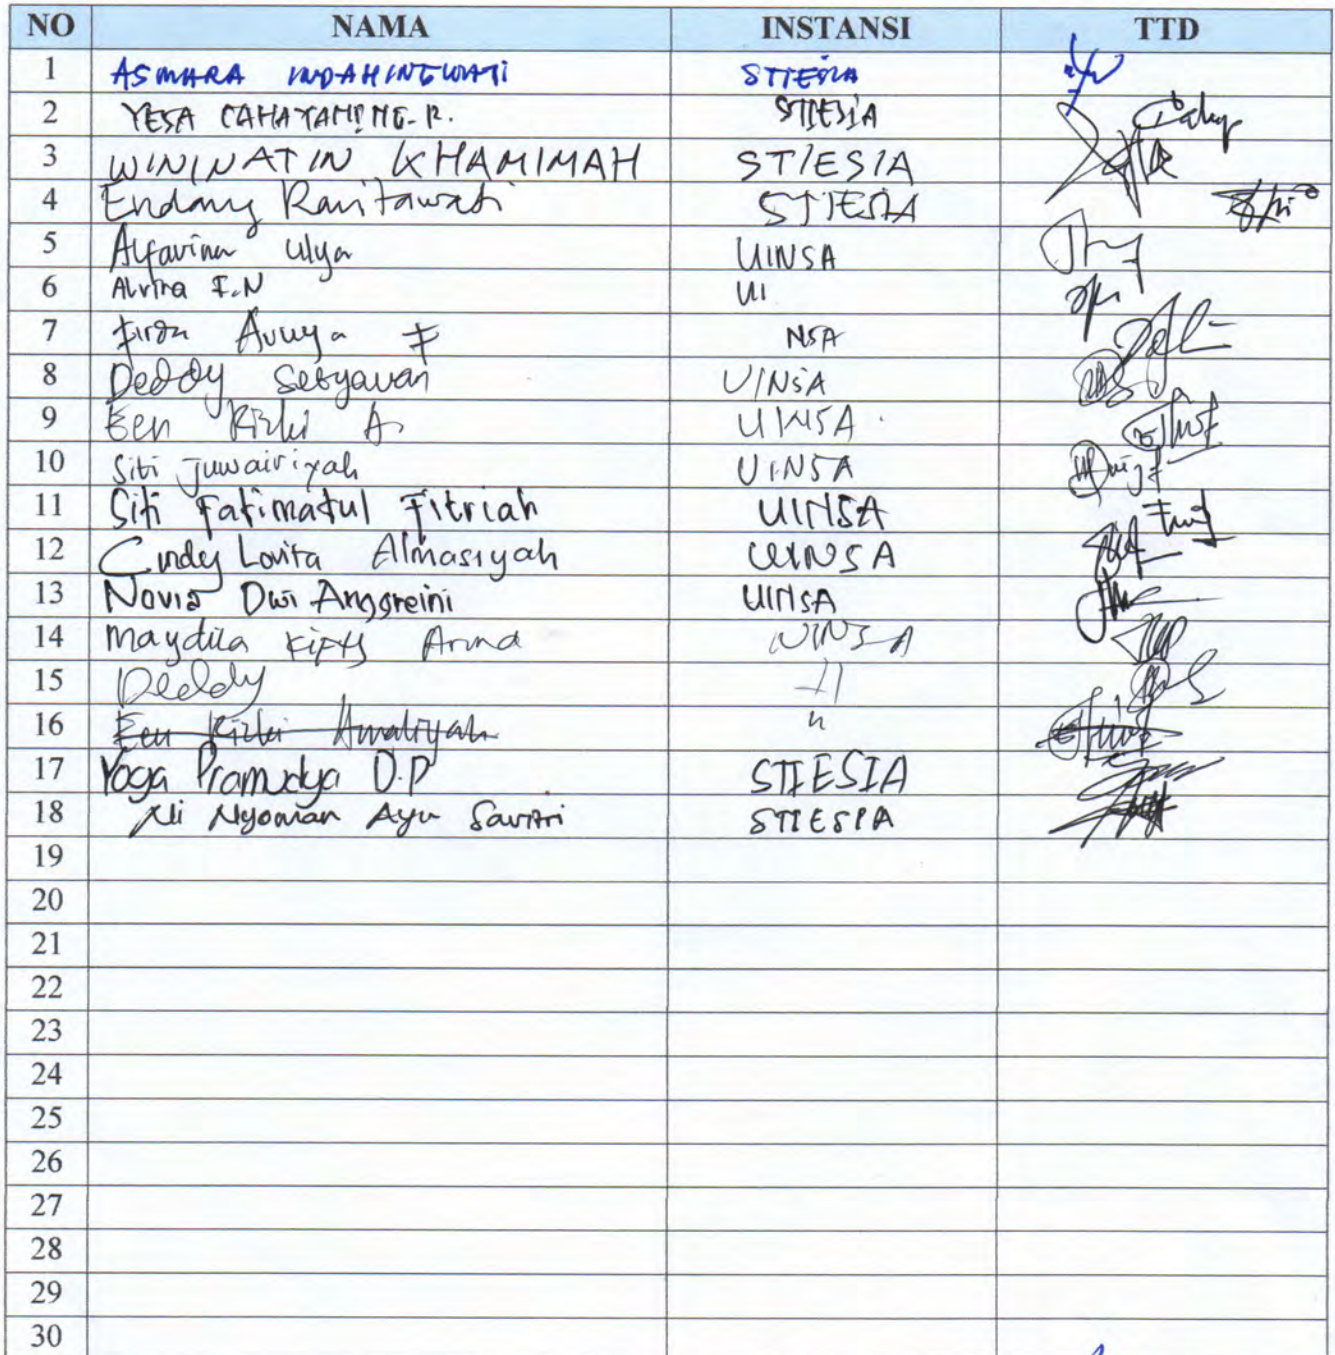 NO NAMA INSTANSI TTD
1 ASMARA INDAHINGWATI STIESIA
2 YESA CAHAYANING. R. STIESIA
3 WININATIN KHAMIMAH STIESIA
4 Endang Ranitawati STIESIA
5 Alfavina Ulya UINSA
6 Alvina F.N UI
7 F NSA
8 Deddy Setyawan UINSA
9 Een Rizki A. UINSA
10 Siti Juwairiyah UINSA
11 Siti Fatimatul Fitriah UINSA
12 Cindy Lovita Almasiyah UINSA
13 Novia Dwi Anggreini UINSA
14 Maydila UINSA
15 Deddy 11
16 Een Rizki Amaliyah "
17 Yoga Pramudya D.P STIESIA
18 Ni Nyoman Ayu Savitri STIESIA
19
20
21
22
23
24
25
26
27
28
29
30